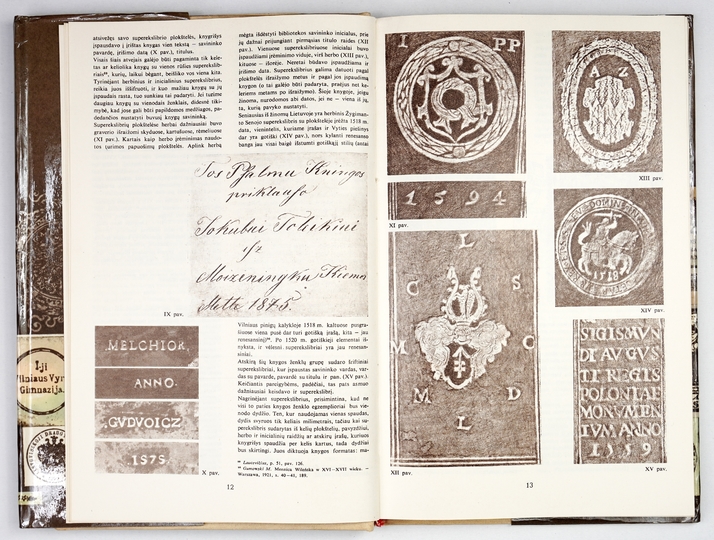 atsivežęs savo superekslibrio plokšteles, knygrišys
įspausdavo į įrištas knygas vien tekstą — savininko
pavardę, įrišimo datą (X pav.), titulus.
Visais šiais atvejais galėjo būti pagaminta tik keletas
ar keliolika knygų su vienos rūšies superekslibriais
kurių, laikui bėgant, beišliko vos viena kita.
Tyrinėjant herbinius ir inicialinius superekslibrius,
reikia juos iššifruoti, ir kuo mažiau knygų su jų
įspaudais rasta, tuo sunkiau tai padaryti. Jei turime
daugiau knygų su vienodais ženklais, didesnė tikimybė,
kad jose gali būti papildomos medžiagos, padedančios
nustatyti buvusį knygų savininką.
Superekslibrių plokštelėse herbai dažniausiai buvo
graverio išraižomi skyduose, kartušuose, rėmeliuose
(XI pav.). Kartais kaip herbo įrėminimas naudotos
turimos papildomos plokštelės. Aplink herbą
mėgta išdėstyti bibliotekos savininko inicialus, prie
jų dažnai prijungiant pirmąsias titulo raides (XII
pav.). Vienuose superekslibriuose inicialai buvo
įspaudžiami įrėminimo viduje, virš herbo (XIII pav.),
kituose — išorėje. Neretai būdavo įspaudžiama ir
įrišimo data. Superekslibrio galima datuoti pagal
plokštelės išraižymo metus ir pagal jos įspaudimą
knygos (o tai galėjo būti padaryta, praėjus net keleriems
metams po išraižymo). Šioje knygoje, jeigu
žinoma, nurodomos abi datos, jei ne — viena iš jų,
ta, kurią pavyko nustatyti.
Seniausias iš žinomų Lietuvoje yra herbinis Žygimanto
Senojo superekslibris su plokštelėje įrėžta 1518 m.
data, vienintelis, kuriame įrašas ir Vyties piešinys
dar yra gotiški (XIV pav.), nors kylanti renesanso
banga jau visai baigė išstumti gotiškąjį stilių (antai
Tos Psalmu Kningos
priklauso
Jokubui
isz
Kiemo
Metu 1875.
IX pav.
MELCHIOR.
ANNO.
GVDVOICZ
1575
X pav.
Vilniaus pinigų kalykloje 1518 m. kaltuose pusgrašiuose
viena pusė dar turi gotišką įrašą, kita — jau
renesansinį). Po 1520 m. gotiškieji elementai išnyksta,
ir vėlesni superekslibriai yra jau renesansiniai.
Atskirą šių knygos ženklų grupę sudaro šriftiniai
superekslibriai, kur įspaustas savininko vardas, vardas
su pavarde, pavardė su titulu ir pan. (XV pav.).
Keičiantis pareigybėms, padėčiai, tas pats asmuo
dažniausiai keisdavo ir superekslibrį.
Nagrinėjant superekslibrius, prisimintina, kad ne
visi to paties knygos ženklo egzemplioriai bus vienodo
dydžio. Ten, kur naudojamas vienas spaudas,
dydis svyruos tik keliais milimetrais, tačiau kai superekslibris
sudarytas iš kelių plokštelių, pavyzdžiui,
herbo ir inicialinių raidžių ar atskirų įrašų, kuriuos
knygrišys spaudžia per kelis kartus, tada dydžiai
bus skirtingi. Juos diktuoja knygos formatas: ma-
p. 51, pav. 126.
Gumowski M. Mennica Wileńska w XVI—XVII wieku. —
Warszawa, 1921, s. 40—41, 189.
12
I PP
1594
XI pav.
L
C S
M C
M D
L
XII pav.
A Z
XIII pav.
1518
XIV pav.
SIGISMVN
DI AVGVS
TI REGIS
POLONIAE
MONVMEN
TVM ANNO
1559
XV pav.
13
Iji
Vilniaus Vyr.
Gimnazija.